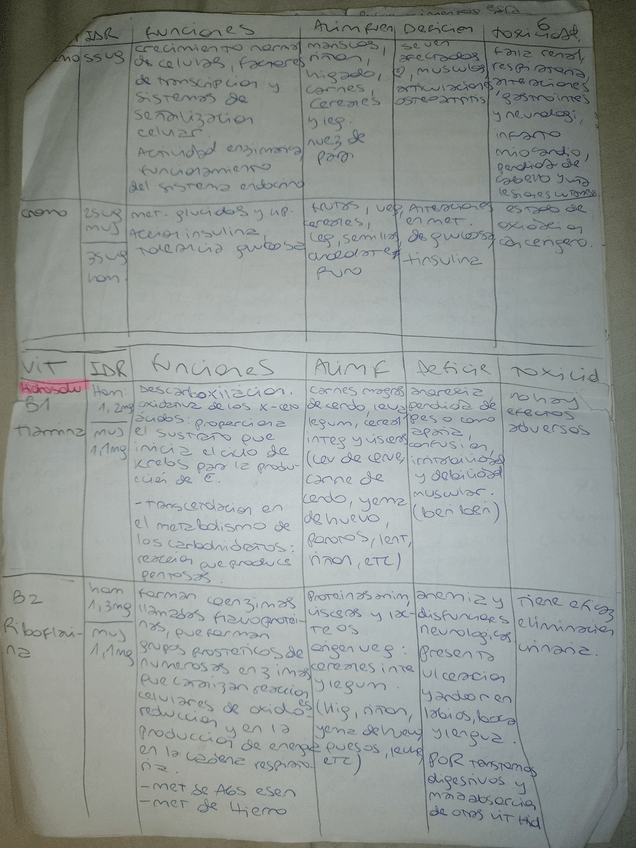 6
IDR funciones Alim fuen Deficien toxicidad
55ug
crecimiento normal
de celulas, factores
de transcripcion y
sistemas de
señalizacion
celular.
Actividad enzimatica
funcionamiento
del sistema endocrino
mariscos,
riñon,
higado,
carnes,
cereales
y leg.
nuez de
para
se ven
afectados
musculos
articulaciones
falla renal,
respiratoria,
alteraciones
gastrointes
y neurologi,
infarto
miocardio,
perdida de
cabello y uña
lesiones cutaneas
cromo
25ug
muj
35ug
hom.
met. glucidos y lip.
Accion insulina,
tolerancia glucosa
frutas, veg,
cereales,
leg, semillas
chocolate
puro
Alteraciones
en met.
de glucosa
+insulina
estado de
oxidacion
cancengero.
VIT IDR funciones Alim F Deficie Toxicid
Hidrosolu
B1
tiamina
Hom
1,2mg
muj
1,1mg
Descarboxilacion
oxidativa de los x-ceto
ácidos: proporciona
el sustrato que
inicia el ciclo de
Krebs para la produ-
ccion de E.
-Transcetolacion en
el metabolismo de
los carbohidratos:
reaccion que produce
pentosas.
carnes magras
de cerdo, leva
legum, cereal
integ y visceras
(Lev de cerve,
carne de
cerdo, yema
de huevo,
porotos, lent,
riñon, etc)
anorexia
perdida de
peso como
apatia,
confusion,
irritabilidad
y debilidad
muscular.
(beri beri)
no hay
efectos
adversos
B2
Riboflavi-
na
hom
1,3mg
muj
1,1mg
forman coenzimas
llamadas flavoprotei-
nas, que forman
grupos prosteticos de
numerosas enzimas
que catalizan reacciones
celulares de oxido-
reduccion y en la
produccion de energia
en la cadena respirato-
ria.
-met de Abs esen
-met de Hierro
Proteinas anim,
visceras y lac-
teos
origen veg:
cereales inte
y legum.
(Hig, riñon,
yema de huevo
quesos, leche
etc)
anemia y
disfunciones
neurologicas
presenta
ulceracion
y ardor en
labios, boca
y lengua.
POR trastornos
digestivos y
mala absorcion
de otras vit Hid
Tiene eficaz
eliminacion
urinaria.